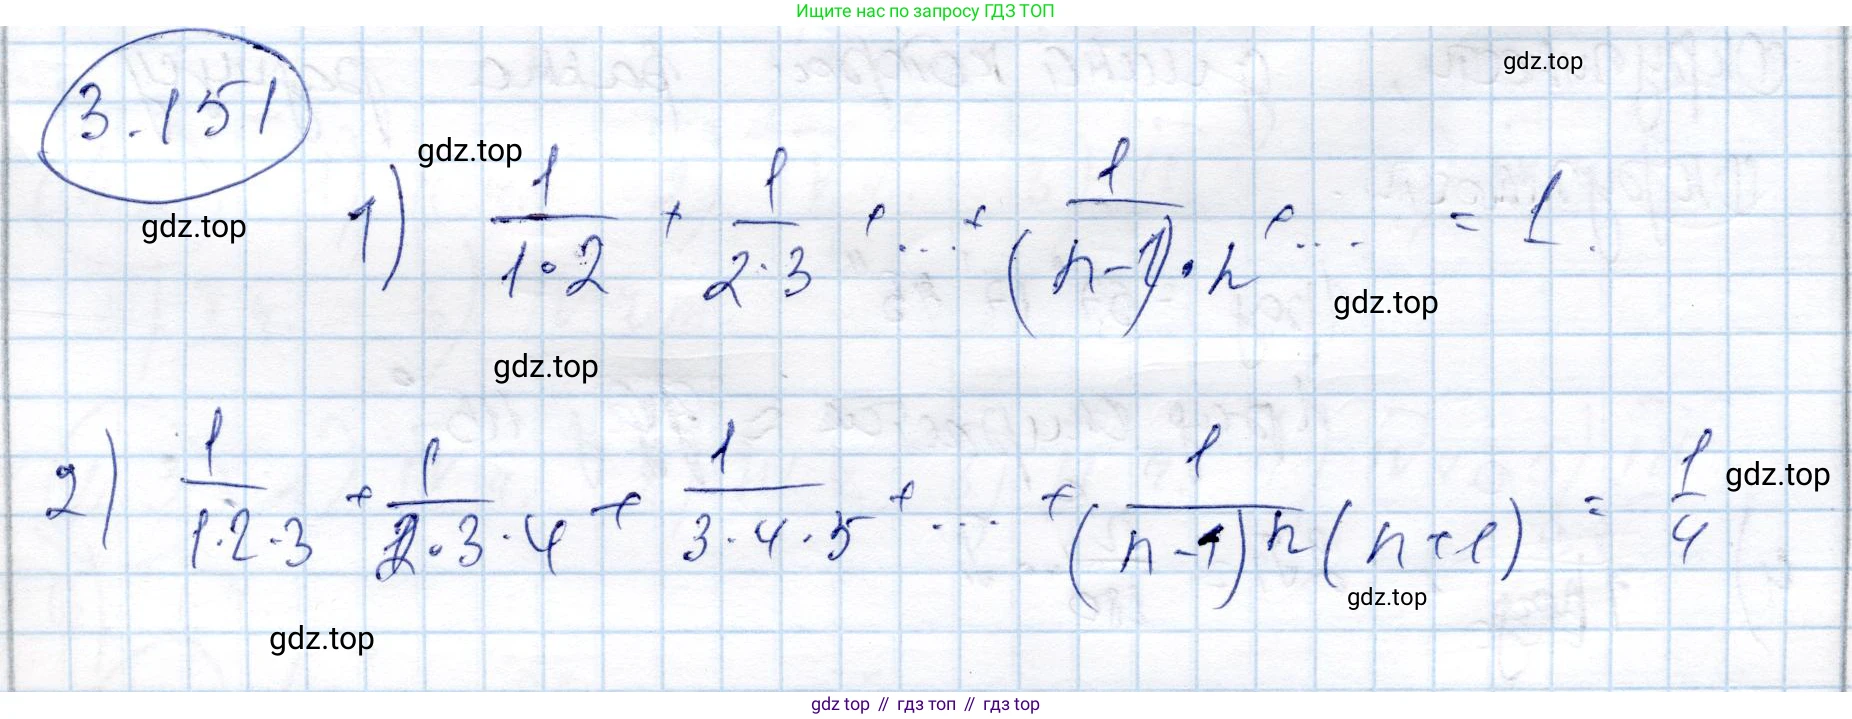 Ищите нас по запросу ГДЗ ТОП
gdz.top
3.151
gdz.top
gdz.top
1) 1/(1·2) + 1/(2·3) + ... + 1/((n-1)·n) + ... = 1.
gdz.top
gdz.top
2) 1/(1·2·3) + 1/(2·3·4) + 1/(3·4·5) + ... + 1/((n-1)n(n+1)) = 1/4
gdz.top
gdz.top
gdz.top
gdz.top // гдз топ // гдз top